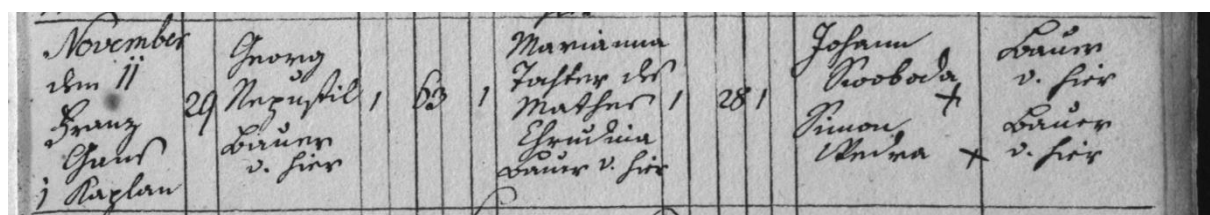 November
dem 11
Franz
Gans
Kaplan
29
Georg
Nepustil
Bauer
v. hier
1
63
1
Marianna
Tochter des
Mathes
Chrudina
Bauer v. hier
1
28
1
Johann
Swoboda +
Simon
Wedra +
Bauer
v. hier
Bauer
v. hier